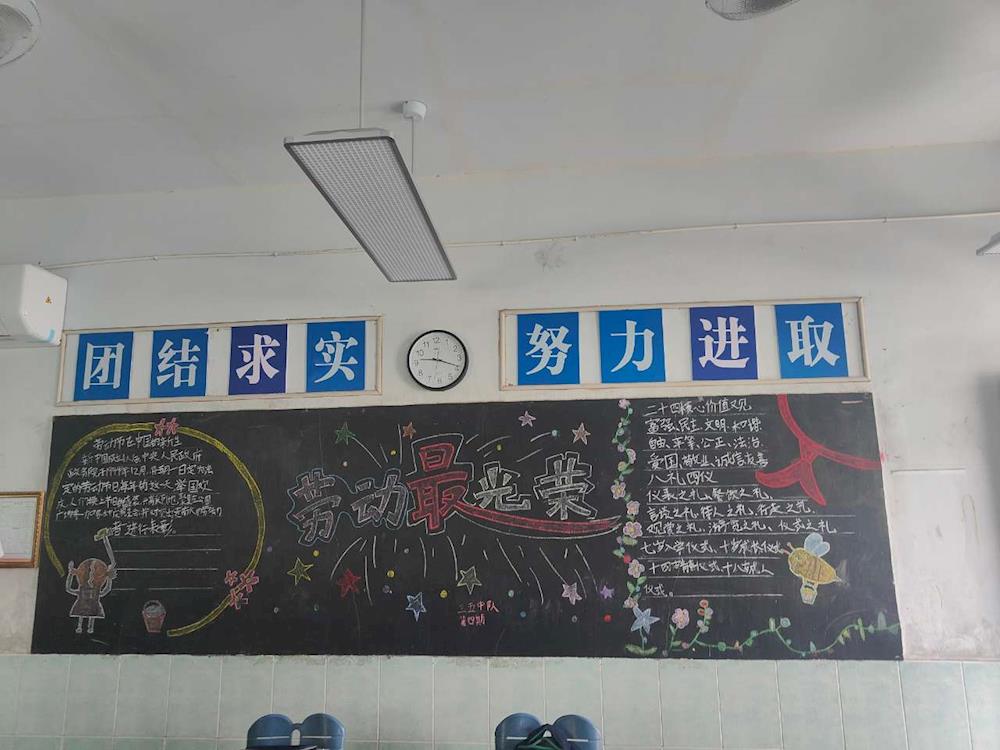 团结求实
努力进取
劳动节在中国的诞生
定的劳动节日每年的这一天，举国欢
者进行表彰。
劳动最光荣
三五中队
第四期
二十四核心价值观
富强、民主、文明、和谐
自由、平等、公正、法治、
爱国、敬业、诚信、友善
八礼四仪
仪表之礼、餐饮之礼、
言谈之礼、待人之礼、行走之礼
观赏之礼、游览之礼、仪式之礼
七岁入学仪式、十岁成长仪式、
十四青春仪式、十八成人
仪式。